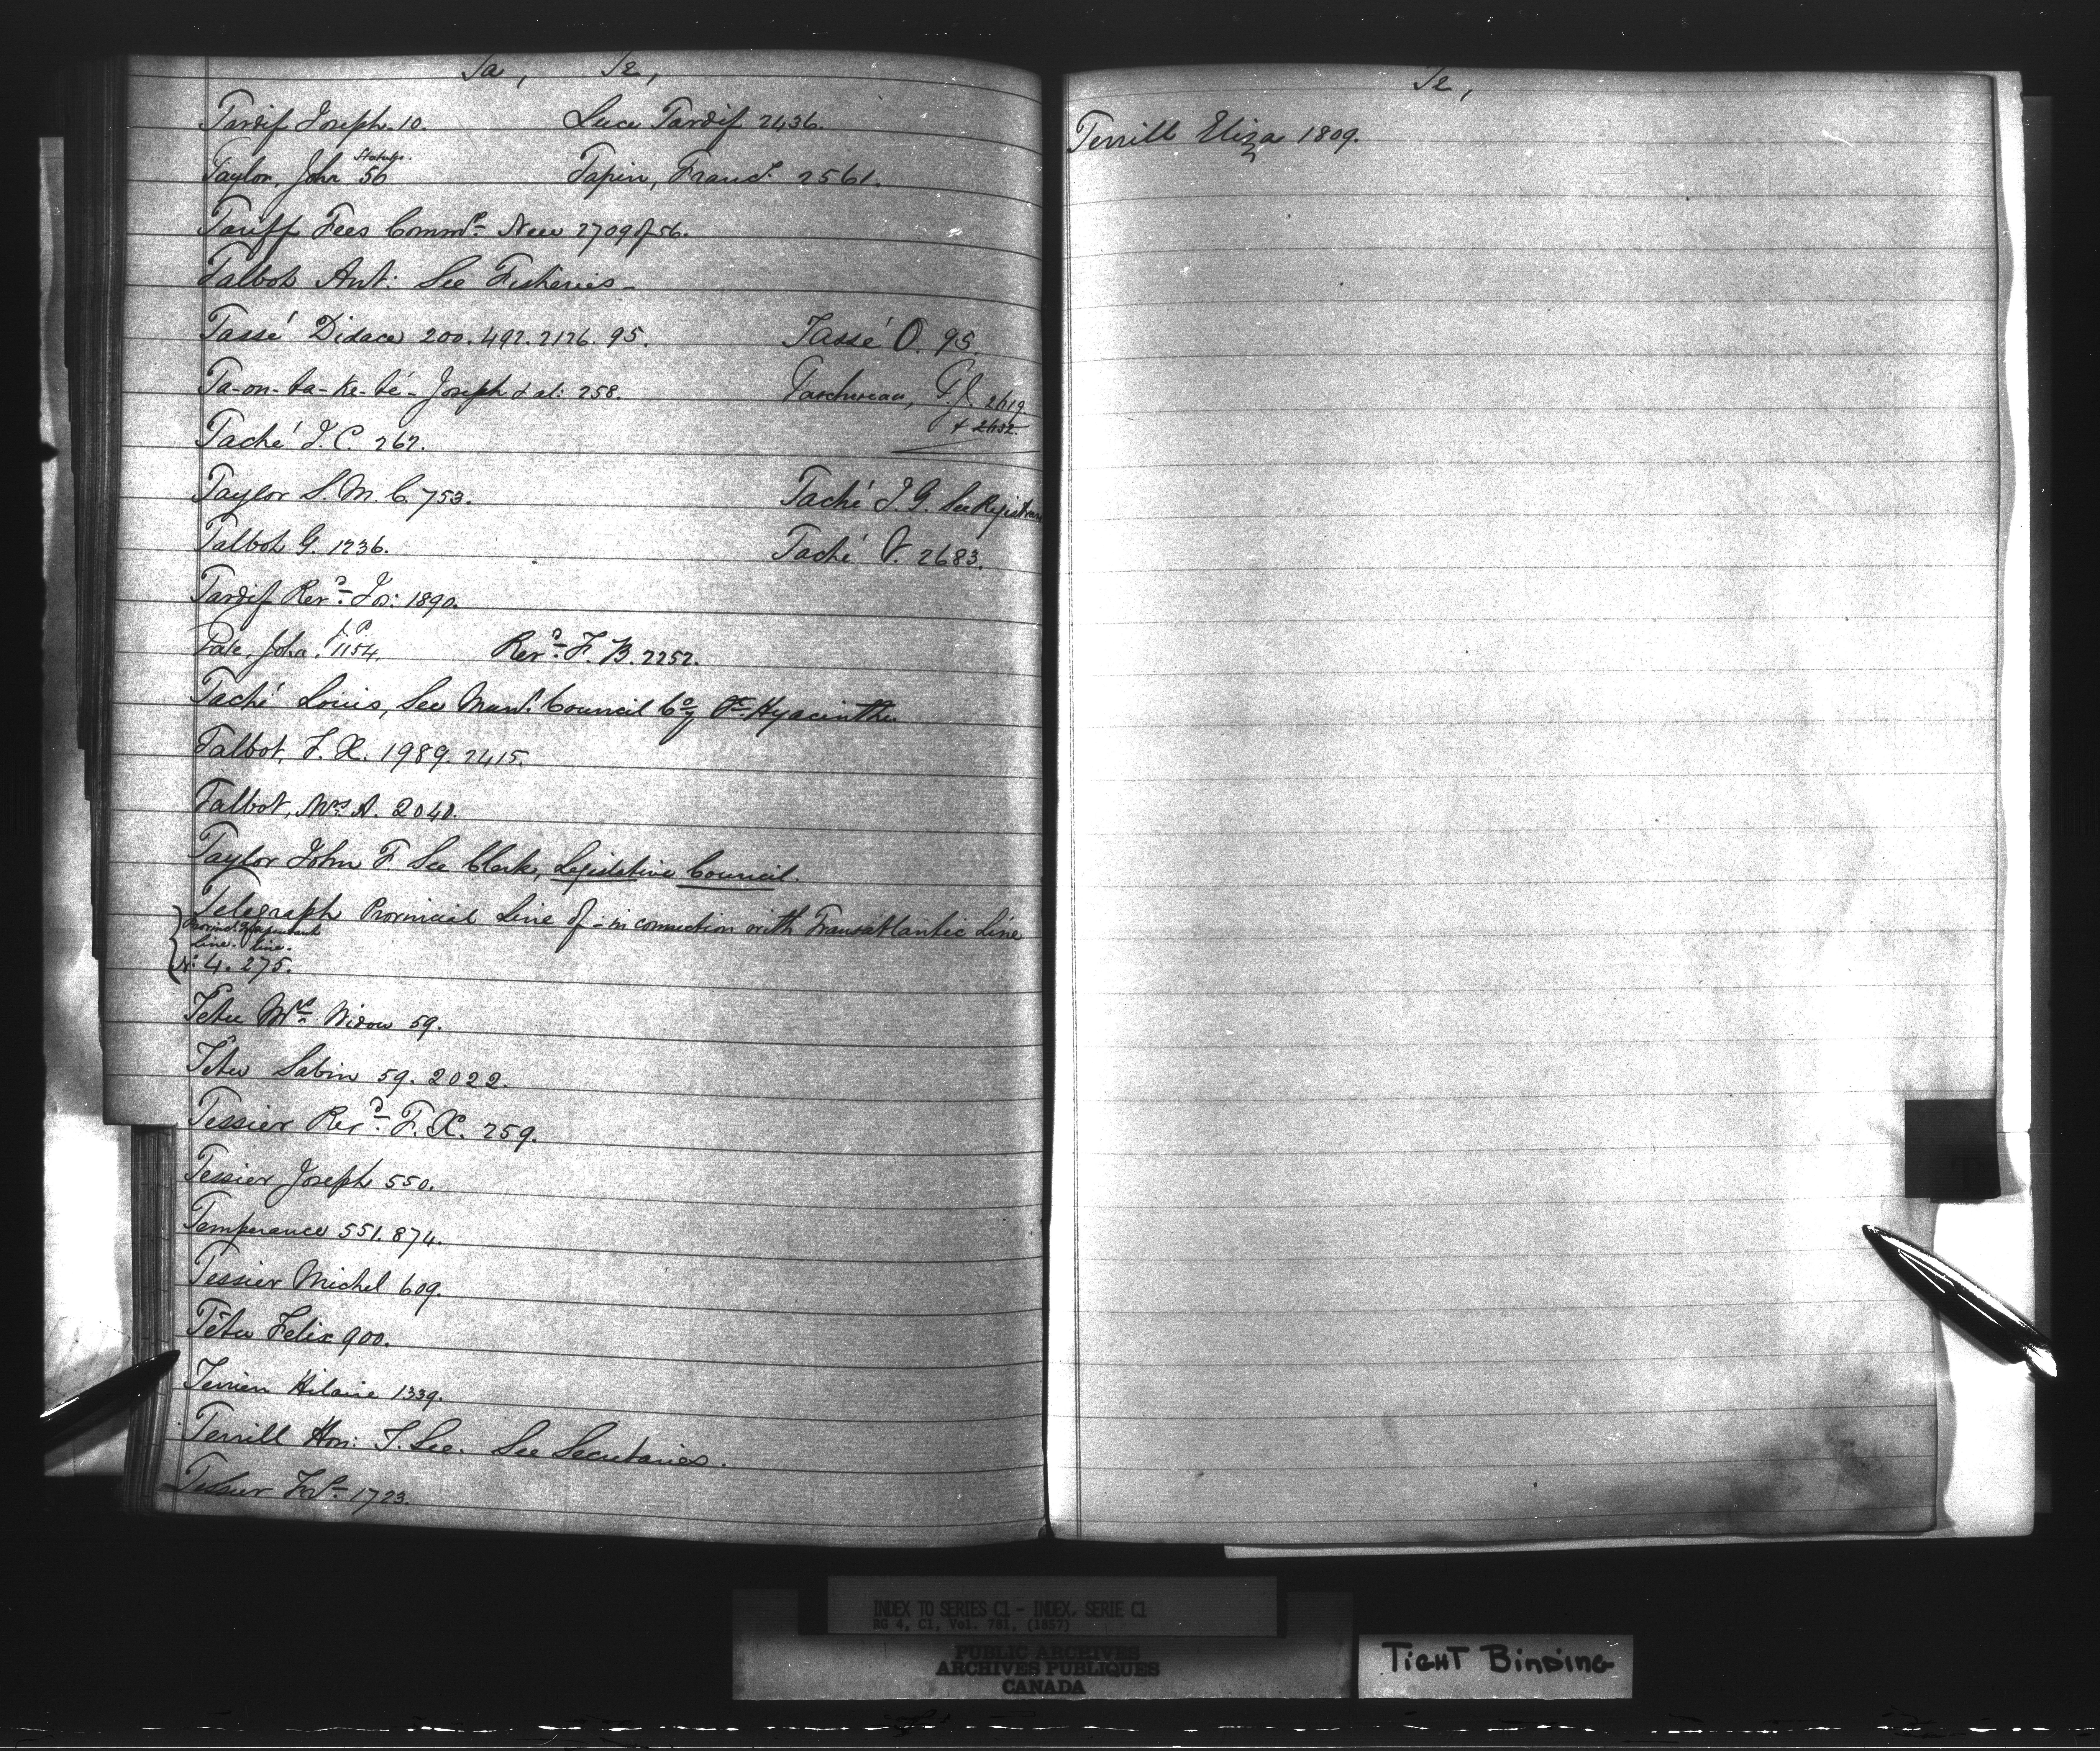 Ta, Te,
Tardif Joseph. 10. Luce Tardif 2436.
Statutes.
Taylor, John 50 Tapin, Franc.s 2561.
Tariff Fees Commrs. New 2709 of 56.
Talbot Ant: See Fisheries-
Tassé Didace 200. 492. 2126. 95. Tassé O. 95.
Ta-on-ta-ke-té- Joseph & al: 258. Taschereau, P.J. 2619
& 2632.
Taché J. C. 262.
Taylor S. M. C. 753. Taché J. G. See Registrars
Talbot G. 1236. Taché V. 2683.
Tardif Revd. Jos: 1890.
J. P.
Tate, John, 1154, Revd. F. B. 2252.
Taché Louis, See Mun. Council Coy St. Hyacinthe
Talbot, F. X. 1989. 2415.
Talbot, Mrs A. 2040.
Taylor John F. See Clerk, Legislative Council.
Telegraph Provincial Line of - in connection with Transatlantic Line
Line. line.
No: 4. 275.
Tetu Mrs. Widow 59.
Têtu Sabin 59. 2022.
Tessier Revd. F. X. 259.
Tessier Joseph 550.
Temperance 551. 874.
Tessier Michel 609.
Têtu Felix 900.
Terrien Hilaire 1339.
Terrill Hon: T. Lee. See Secretaries.
Tessier 1723.
Te,
Terrill Eliza 1809.
T
INDEX TO SERIES C1 - INDEX, SERIE C1
RG 4, C1, Vol. 781, (1857)
PUBLIC ARCHIVES
ARCHIVES PUBLIQUES
CANADA
TIGHT BINDING